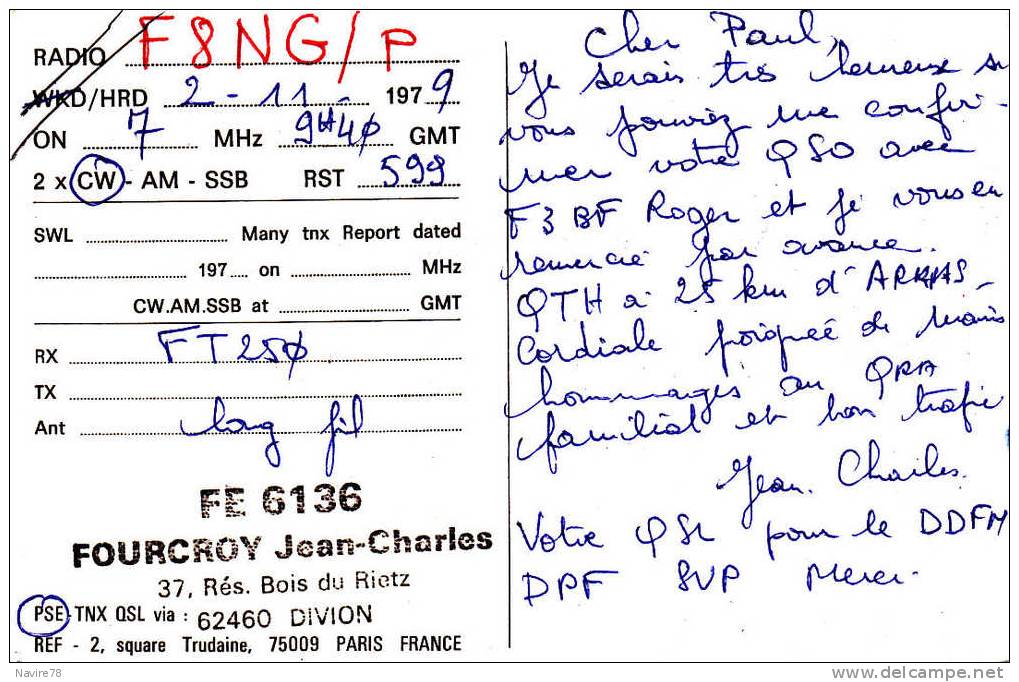 RADIO F8NG/P
WKD/HRD 2-11- 1979
ON 7 MHz 9H4φ GMT
2 x CW - AM - SSB RST 599
SWL Many tnx Report dated
197 on MHz
CW.AM.SSB at GMT
RX FT25φ
TX
Ant long fil
FE 6136
FOURCROY Jean-Charles
37, Rés. Bois du Rietz
PSE-TNX QSL via : 62460 DIVION
REF - 2, square Trudaine, 75009 PARIS FRANCE
Cher Paul,
Je serais très heureux si
vous pouviez me confir-
mer votre QSO avec
F3BF Roger et je vous en
remercie par avance.
QTH à 25 km d'ARRAS_
Cordiale poignée de mains
hommages au QRA
familial et bon trafic
Jean. Charles.
Votre QSL pour le DDFM
DPF SVP Merci.
Navire78
delcampe.net